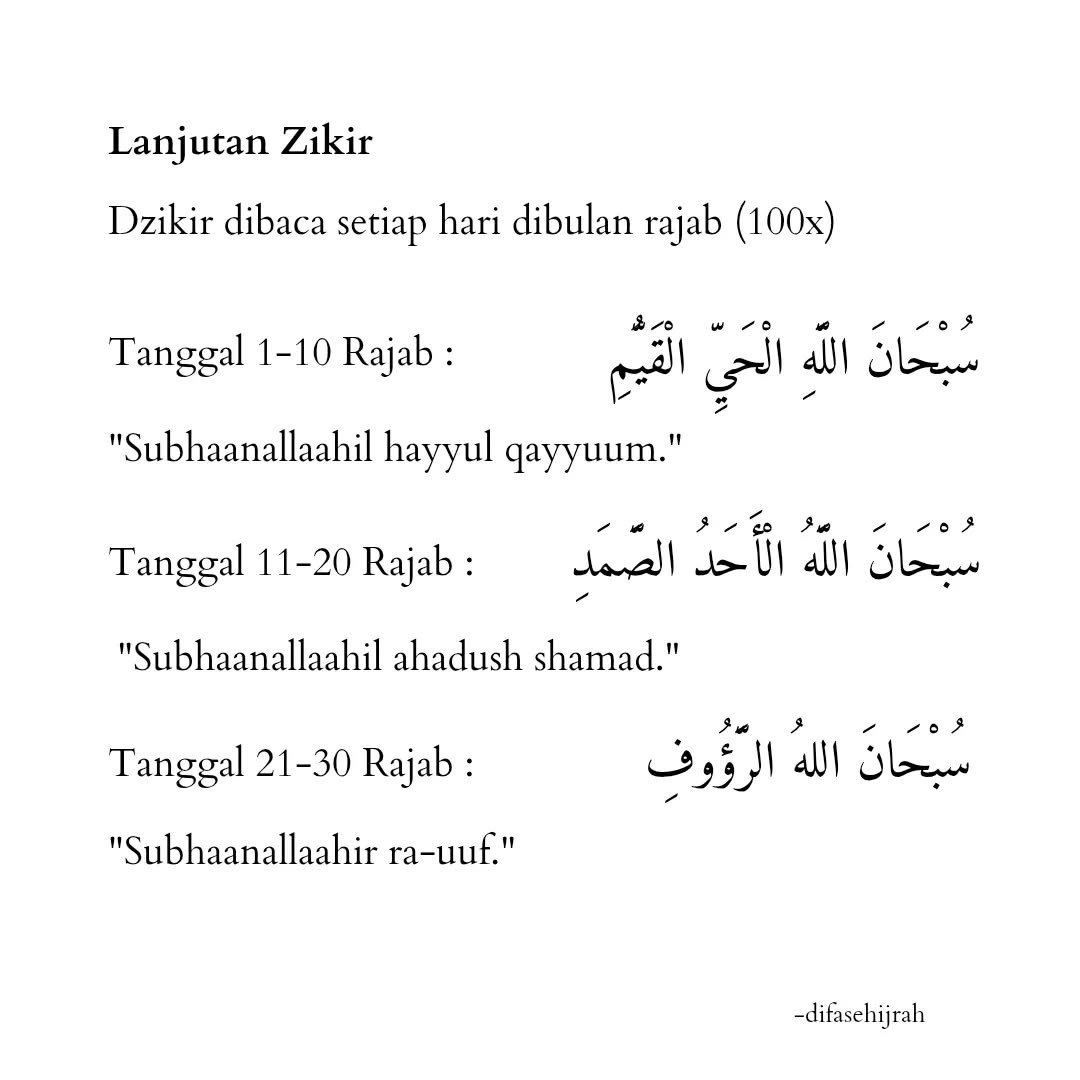 Lanjutan Zikir
Dzikir dibaca setiap hari dibulan rajab (100x)
Tanggal 1-10 Rajab : سُبْحَانَ اللَّهِ الْحَيِّ الْقَيُّمِ
"Subhaanallaahil hayyul qayyuum."
Tanggal 11-20 Rajab : سُبْحَانَ اللَّهُ الْأَحَدُ الصَّمَدِ
"Subhaanallaahil ahadush shamad."
Tanggal 21-30 Rajab : سُبْحَانَ اللهُ الرَّؤُوفِ
"Subhaanallaahir ra-uuf."
-difasehijrah